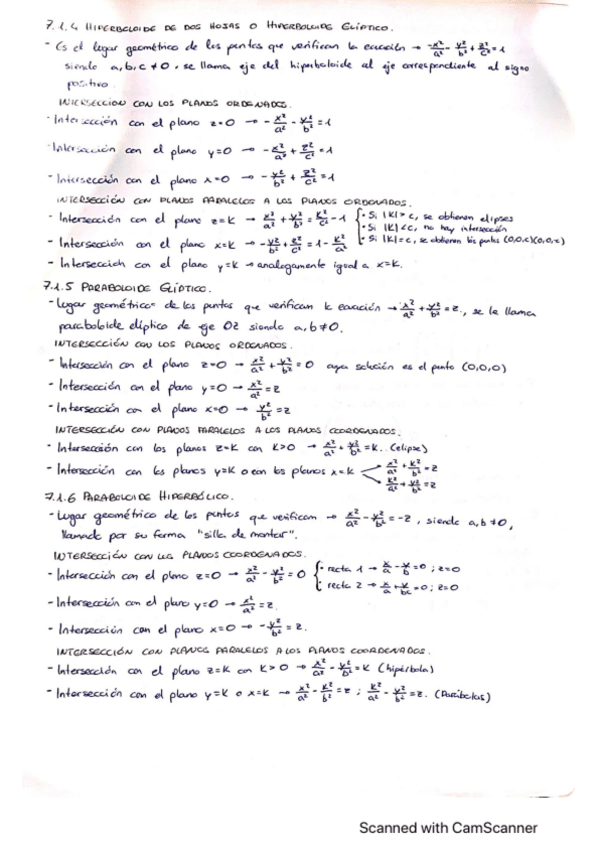 7.1.4 HIPERBOLOIDE DE DOS HOJAS O HIPERBOLOIDE ELÍPTICO.
- Es el lugar geométrico de los puntos que verifican la ecuación → -x²/a² - y²/b² + z²/c² = 1
siendo a, b, c ≠ 0, se llama eje del hiperboloide al eje correspondiente al signo
positivo.
INTERSECCIÓN CON LOS PLANOS ORDENADOS.
- Intersección con el plano z=0 → -x²/a² - y²/b² = 1
- Intersección con el plano y=0 → -x²/a² + z²/c² = 1
- Intersección con el plano x=0 → -y²/b² + z²/c² = 1
INTERSECCIÓN CON PLANOS PARALELOS A LOS PLANOS ORDENADOS.
- Intersección con el plano z=K → x²/a² + y²/b² = K²/c² - 1 { • Si |K|>c, se obtienen elipses
• Si |K|<c, no hay intersección
- Intersección con el plano x=K → -y²/b² + z²/c² = 1 - K²/a² • Si |K|=c, se obtienen los puntos (0,0,c)(0,0,-c)
- Intersección con el plano y=K → analogamente igual a x=K.
7.1.5 PARABOLOIDE ELÍPTICO.
- Lugar geométrico de los puntos que verifican la ecuación → x²/a² + y²/b² = z, se le llama
paraboloide elíptico de eje OZ siendo a, b ≠ 0.
INTERSECCIÓN CON LOS PLANOS ORDENADOS.
- Intersección con el plano z=0 → x²/a² + y²/b² = 0 cuya solución es el punto (0,0,0)
- Intersección con el plano y=0 → x²/a² = z
- Intersección con el plano x=0 → y²/b² = z
INTERSECCIÓN CON PLANOS PARALELOS A LOS PLANOS COORDENADOS.
- Intersección con los planos z=K con K>0 → x²/a² + y²/b² = K. (elipse)
- Intersección con los planos y=K o con los planos x=K x²/a² + K²/b² = z
K²/a² + y²/b² = z
7.1.6 PARABOLOIDE HIPERBÓLICO.
- Lugar geométrico de los puntos que verifican → x²/a² - y²/b² = -z, siendo a, b ≠ 0,
llamado por su forma "silla de montar".
INTERSECCIÓN CON LOS PLANOS COORDENADOS.
- Intersección con el plano z=0 → x²/a² - y²/b² = 0 { • recta 1 → x/a - y/b = 0 ; z=0
• recta 2 → x/a + y/b = 0 ; z=0
- Intersección con el plano y=0 → x²/a² = z.
- Intersección con el plano x=0 → -y²/b² = z.
INTERSECCIÓN CON PLANOS PARALELOS A LOS PLANOS COORDENADOS.
- Intersección con el plano z=K con K>0 → x²/a² - y²/b² = K (hipérbola)
- Intersección con el plano y=K o x=K → x²/a² - K²/b² = z ; K²/a² - y²/b² = z. (Parábolas)
Scanned with CamScanner